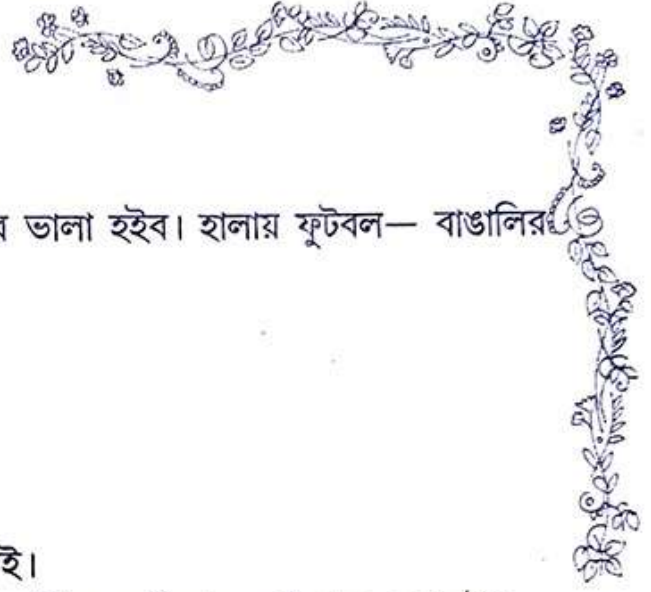 ভালা হইব। হালায় ফুটবল— বাঙালির
ই।